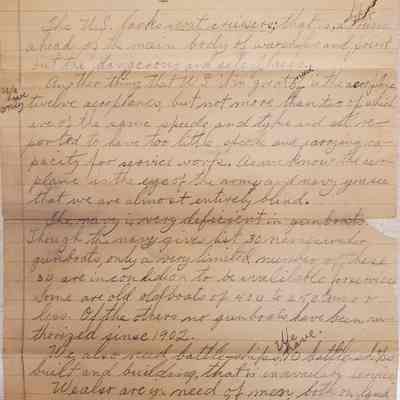 The U.S. lacks scout cruisers; that is, a
ahead of the main body of warships and point
out the dangerous and safe
Another thing that the is in great need is the aeroplane
We have only
twelve aeroplanes, but not more than two of which
are of the same speed and type and all re-
ported to have too little speed and carrying ca-
pacity for service work. As we know the aero-
plane is the eyes of the army and navy you see
that we are almost entirely blind.
The navy is very deficient in gunboats.
Though the navy gives list 30
gunboats, only a very limited number of these
30 are in condition to be available for service
Some are old boats of
less. Of the others no gunboats have been au-
thorized since 1902.
We have
We also need battleships, battleships
built and building, that is in service
We also are in need of men, both on land